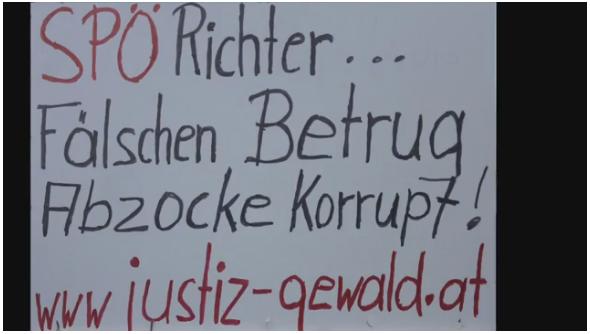 SPÖ Richter...
Fälschen Betrug
Abzocke Korrupt!
www justiz-gewald.at